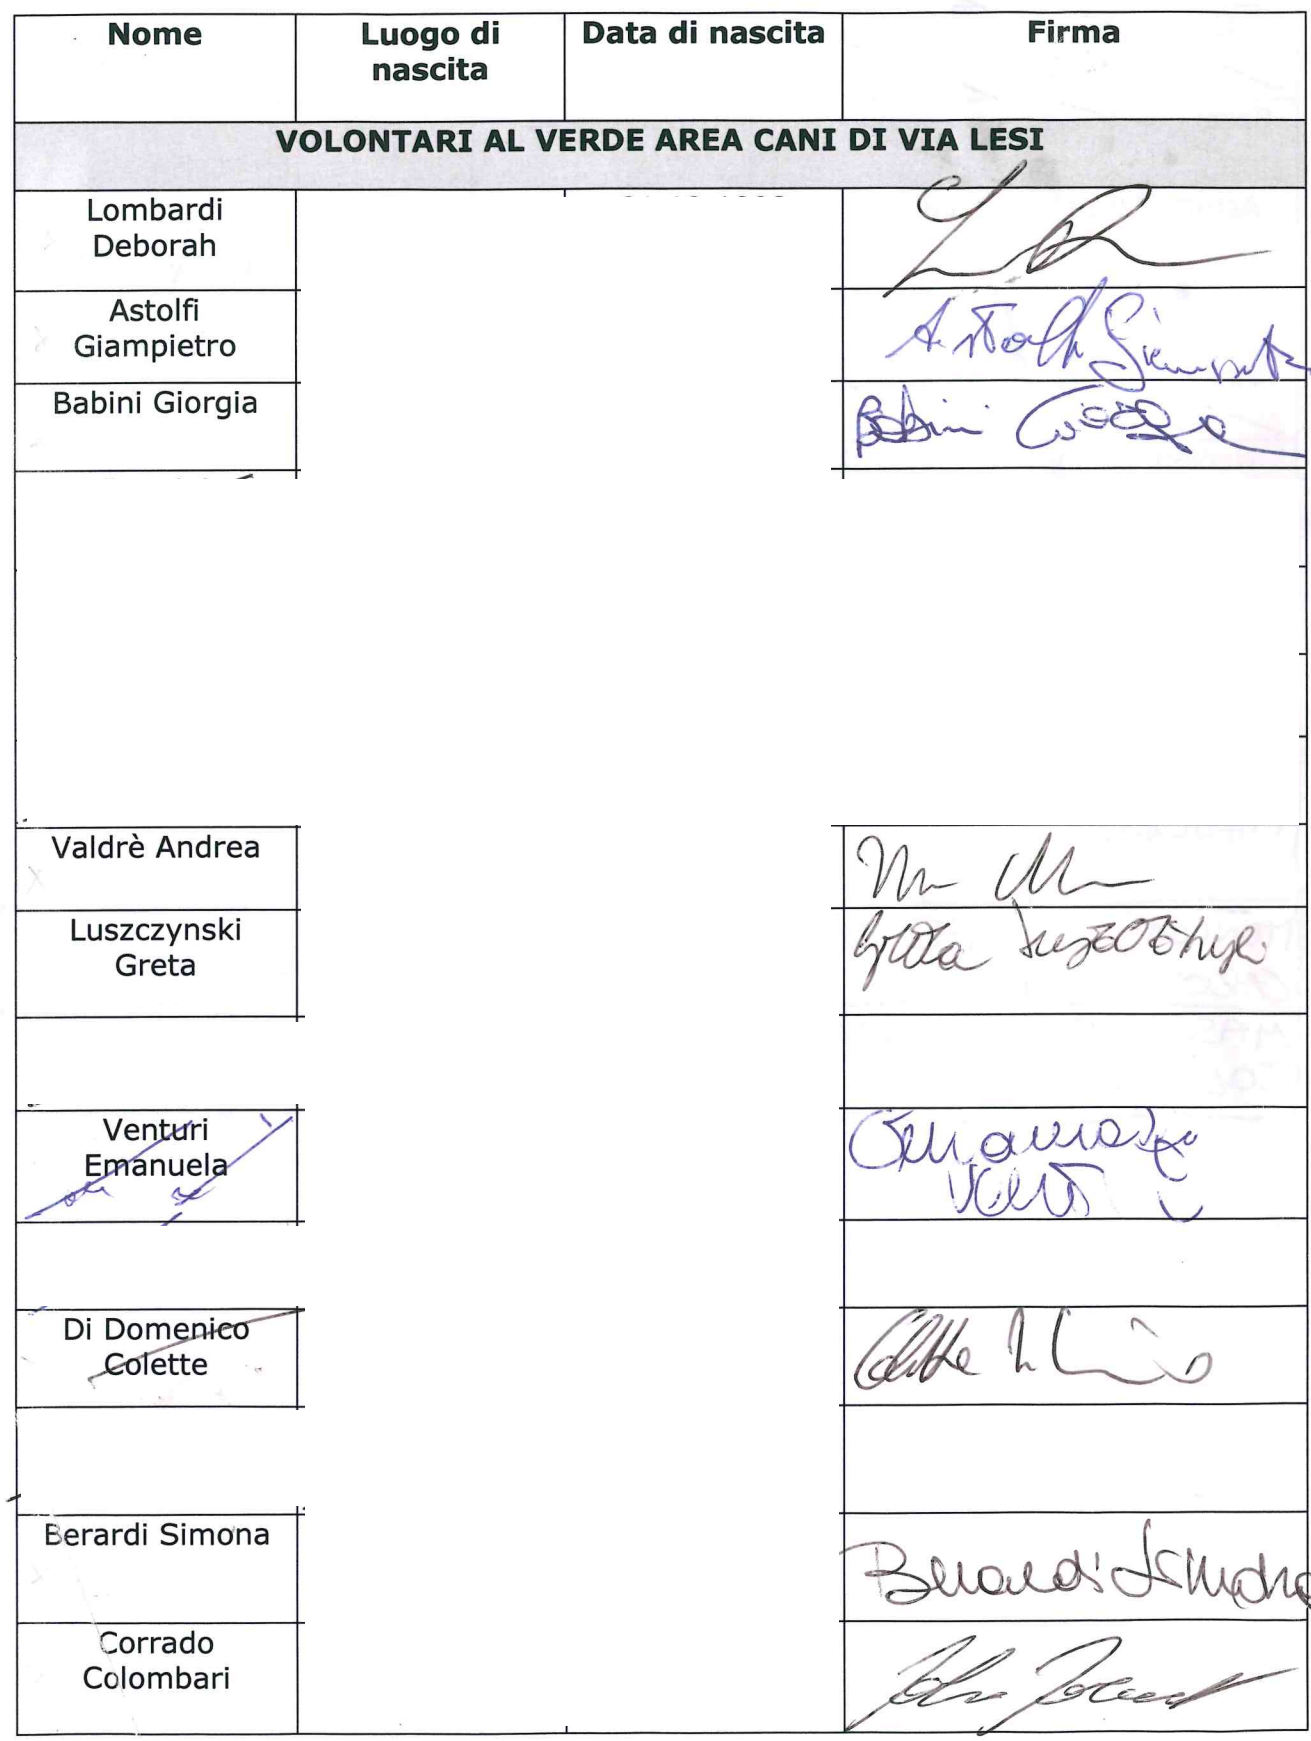 Nome
Luogo di
nascita
Data di nascita
Firma
VOLONTARI AL VERDE AREA CANI DI VIA LESI
Lombardi
Deborah
Astolfi
Giampietro
Astolfi Giampietro
Babini Giorgia
Babini Giorgia
Valdrè Andrea
Luszczynski
Greta
Greta
Venturi
Emanuela
Di Domenico
Colette
Colette
Berardi Simona
Berardi Simona
Corrado
Colombari